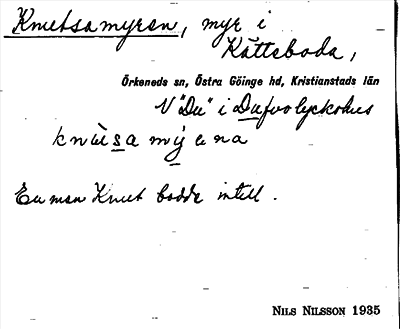 Knutsamyren, myr i
Kätteboda,
Örkeneds sn, Östra Göinge hd, Kristianstads län
V "Du" i Dufvolyckohus
knùsa mýrna
En man Knut bodde intill.
NILS NILSSON 1935